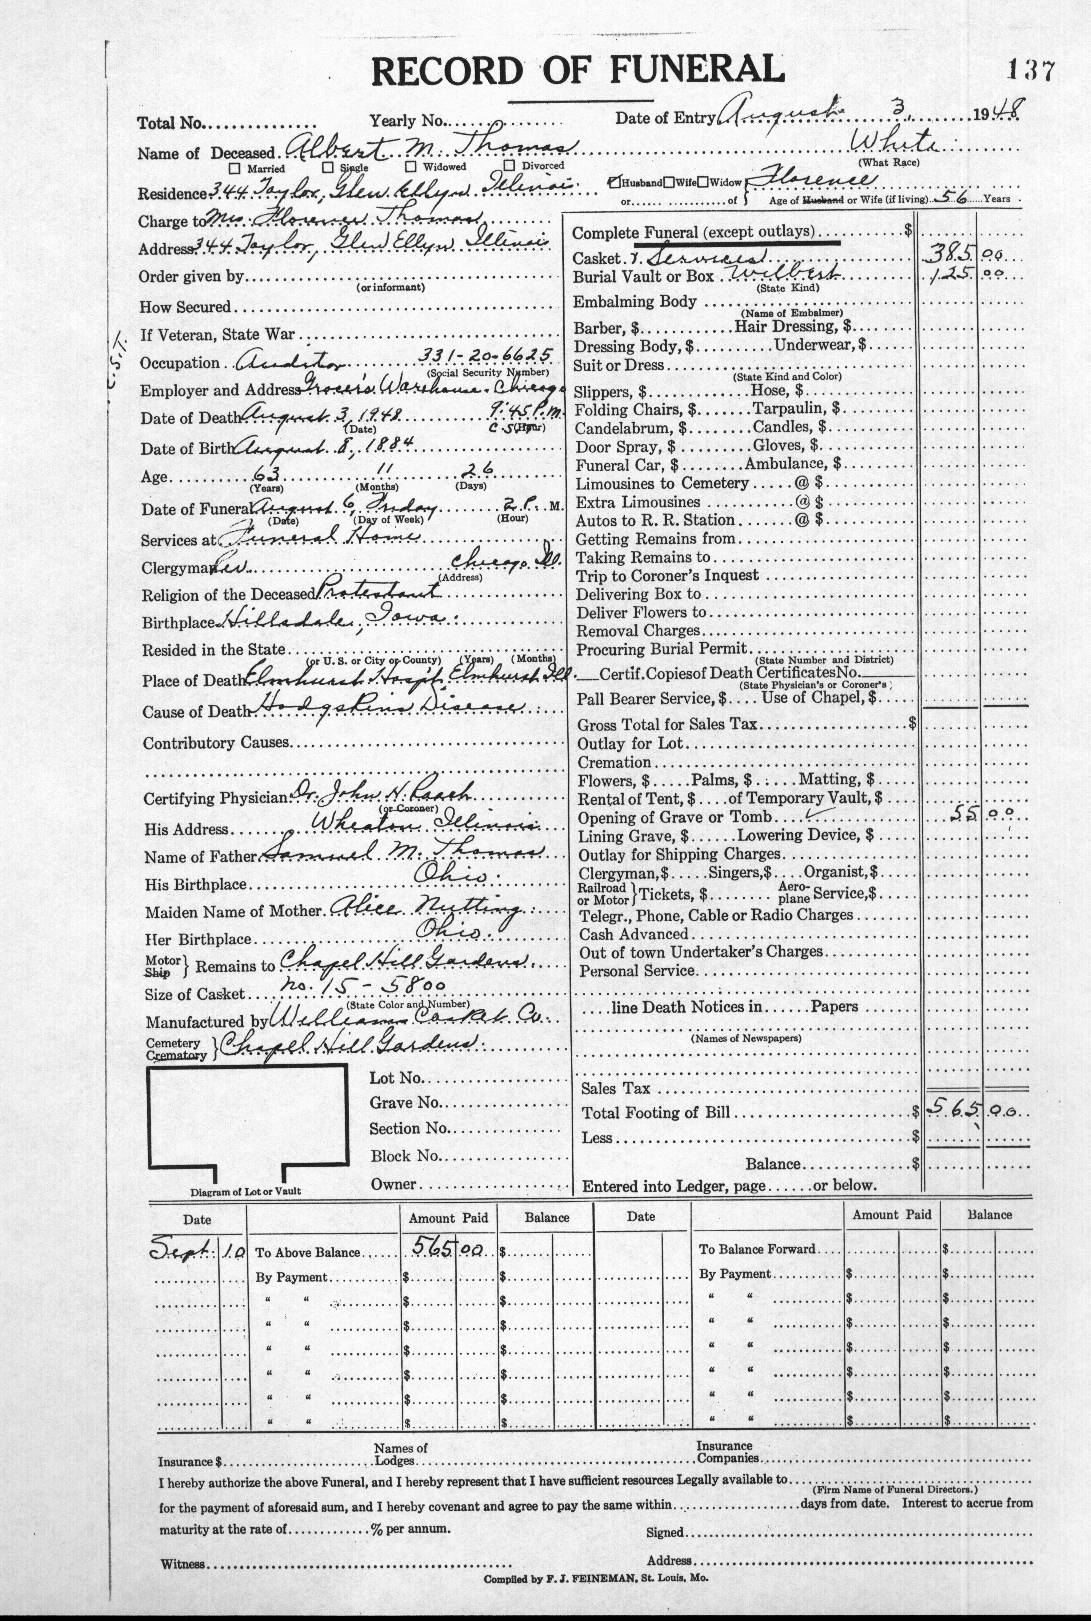 RECORD OF FUNERAL
137
Total No. Yearly No. Date of Entry August 3, 1948
Name of Deceased Albert M. Thomas White
(What Race)
Married Single Widowed Divorced
Residence 344 Taylor, Glen Ellyn Illinois Husband Wife Widow Florence
or of Age of Husband or Wife (if living) 56 Years
Charge to Mrs. Florence Thomas
Address 344 Taylor, Glen Ellyn Illinois
Order given by
(or informant)
How Secured
If Veteran, State War
C.S.T.
Occupation Auditor 331-20-6625
(Social Security Number)
Employer and Address Grocers Warehouse. Chicago
Date of Death August 3, 1948 9:45 P.M.
(Date) (Hour)
Date of Birth August 8, 1884
Age 63 11 26
(Years) (Months) (Days)
Date of Funeral August 6, Friday 2 P. M.
(Date) (Day of Week) (Hour)
Services at Funeral Home
Clergyman Rev. Chicago Ill.
(Address)
Religion of the Deceased Protestant
Birthplace Hillsdale, Iowa
Resided in the State
(or U. S. or City or County) (Years) (Months)
Place of Death Elmhurst Hosp. Elmhurst Ill.
Cause of Death Hodgskins Disease
Contributory Causes
Certifying Physician Dr. John H. Raach
(or Coroner)
His Address Wheaton, Illinois
Name of Father Samuel M. Thomas
His Birthplace Ohio
Maiden Name of Mother Alice Nutting
Her Birthplace Ohio
Motor
Ship } Remains to Chapel Hill Gardens
Size of Casket no. 15 - 5800
(State Color and Number)
Manufactured by Williams Casket Co.
Cemetery
Crematory } Chapel Hill Gardens
Lot No.
Grave No.
Section No.
Block No.
Owner
Diagram of Lot or Vault
Complete Funeral (except outlays) $
Casket & Services 385 00
Burial Vault or Box Wilbert 125 00
(State Kind)
Embalming Body
(Name of Embalmer)
Barber, $ Hair Dressing, $
Dressing Body, $ Underwear, $
Suit or Dress
(State Kind and Color)
Slippers, $ Hose, $
Folding Chairs, $ Tarpaulin, $
Candelabrum, $ Candles, $
Door Spray, $ Gloves, $
Funeral Car, $ Ambulance, $
Limousines to Cemetery @ $
Extra Limousines @ $
Autos to R. R. Station @ $
Getting Remains from
Taking Remains to
Trip to Coroner's Inquest
Delivering Box to
Deliver Flowers to
Removal Charges
Procuring Burial Permit
(State Number and District)
Certif. Copies of Death Certificates No.
(State Physician's or Coroner's)
Pall Bearer Service, $ Use of Chapel, $
Gross Total for Sales Tax $
Outlay for Lot
Cremation
Flowers, $ Palms, $ Matting, $
Rental of Tent, $ of Temporary Vault, $
Opening of Grave or Tomb ✓ 55 00
Lining Grave, $ Lowering Device, $
Outlay for Shipping Charges
Clergyman, $ Singers, $ Organist, $
Railroad
or Motor } Tickets, $ Aero-
plane Service, $
Telegr., Phone, Cable or Radio Charges
Cash Advanced
Out of town Undertaker's Charges
Personal Service
line Death Notices in Papers
(Names of Newspapers)
Sales Tax
Total Footing of Bill $ 565 00
Less $
Balance $
Entered into Ledger, page or below.
Date Amount Paid Balance Date Amount Paid Balance
Sept. 10 To Above Balance 565 00 $ To Balance Forward $
By Payment $ $ By Payment $ $
" " $ $ " " $ $
" " $ $ " " $ $
" " $ $ " " $ $
" " $ $ " " $ $
" " $ $ " " $ $
" " $ $ " " $ $
Insurance $ Names of
Lodges Insurance
Companies
I hereby authorize the above Funeral, and I hereby represent that I have sufficient resources Legally available to
(Firm Name of Funeral Directors.)
for the payment of aforesaid sum, and I hereby covenant and agree to pay the same within days from date. Interest to accrue from
maturity at the rate of % per annum. Signed
Witness Address
Compiled by F. J. FEINEMAN, St. Louis, Mo.